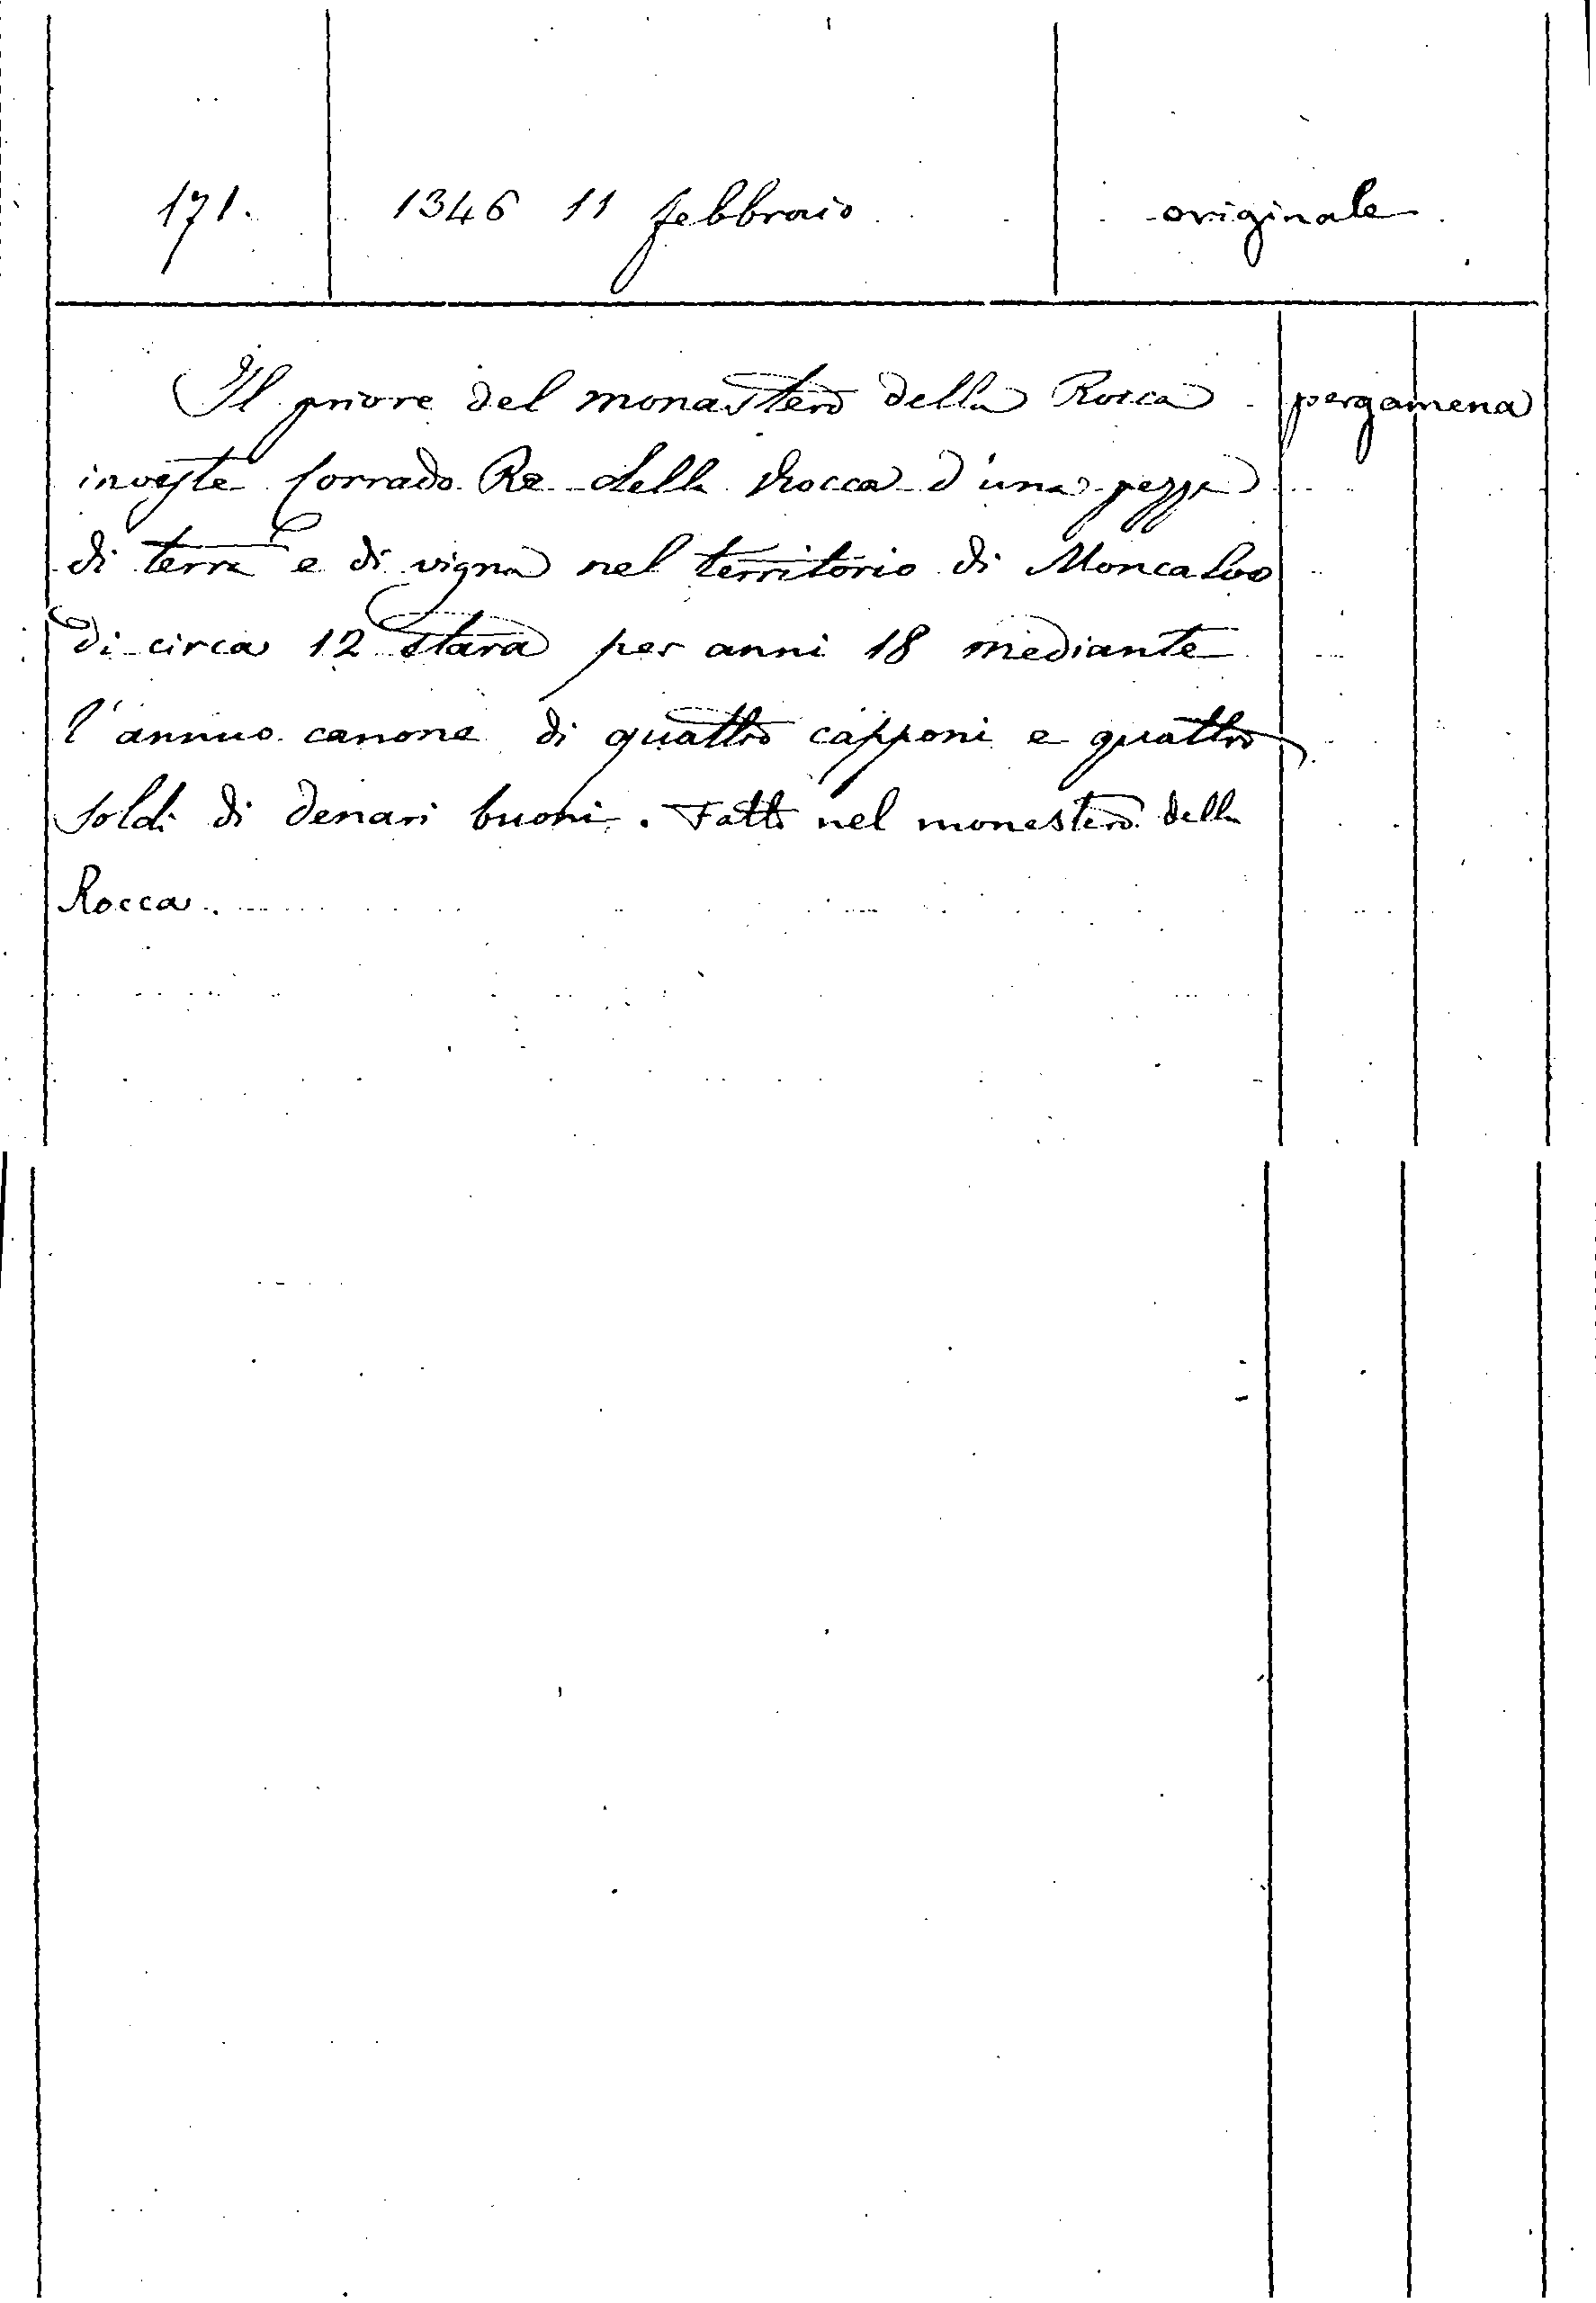 171. 1346 11 febbraio originale
Il priore del monastero della Rocca pergamena
investe Corrado Re della Rocca d'una pezza
di terra e di vigna nel territorio di Moncalvo
di circa 12 stara per anni 18 mediante
l'annuo canone di quattro capponi e quattro
soldi di denari buoni. Fatto nel monestero della
Rocca.